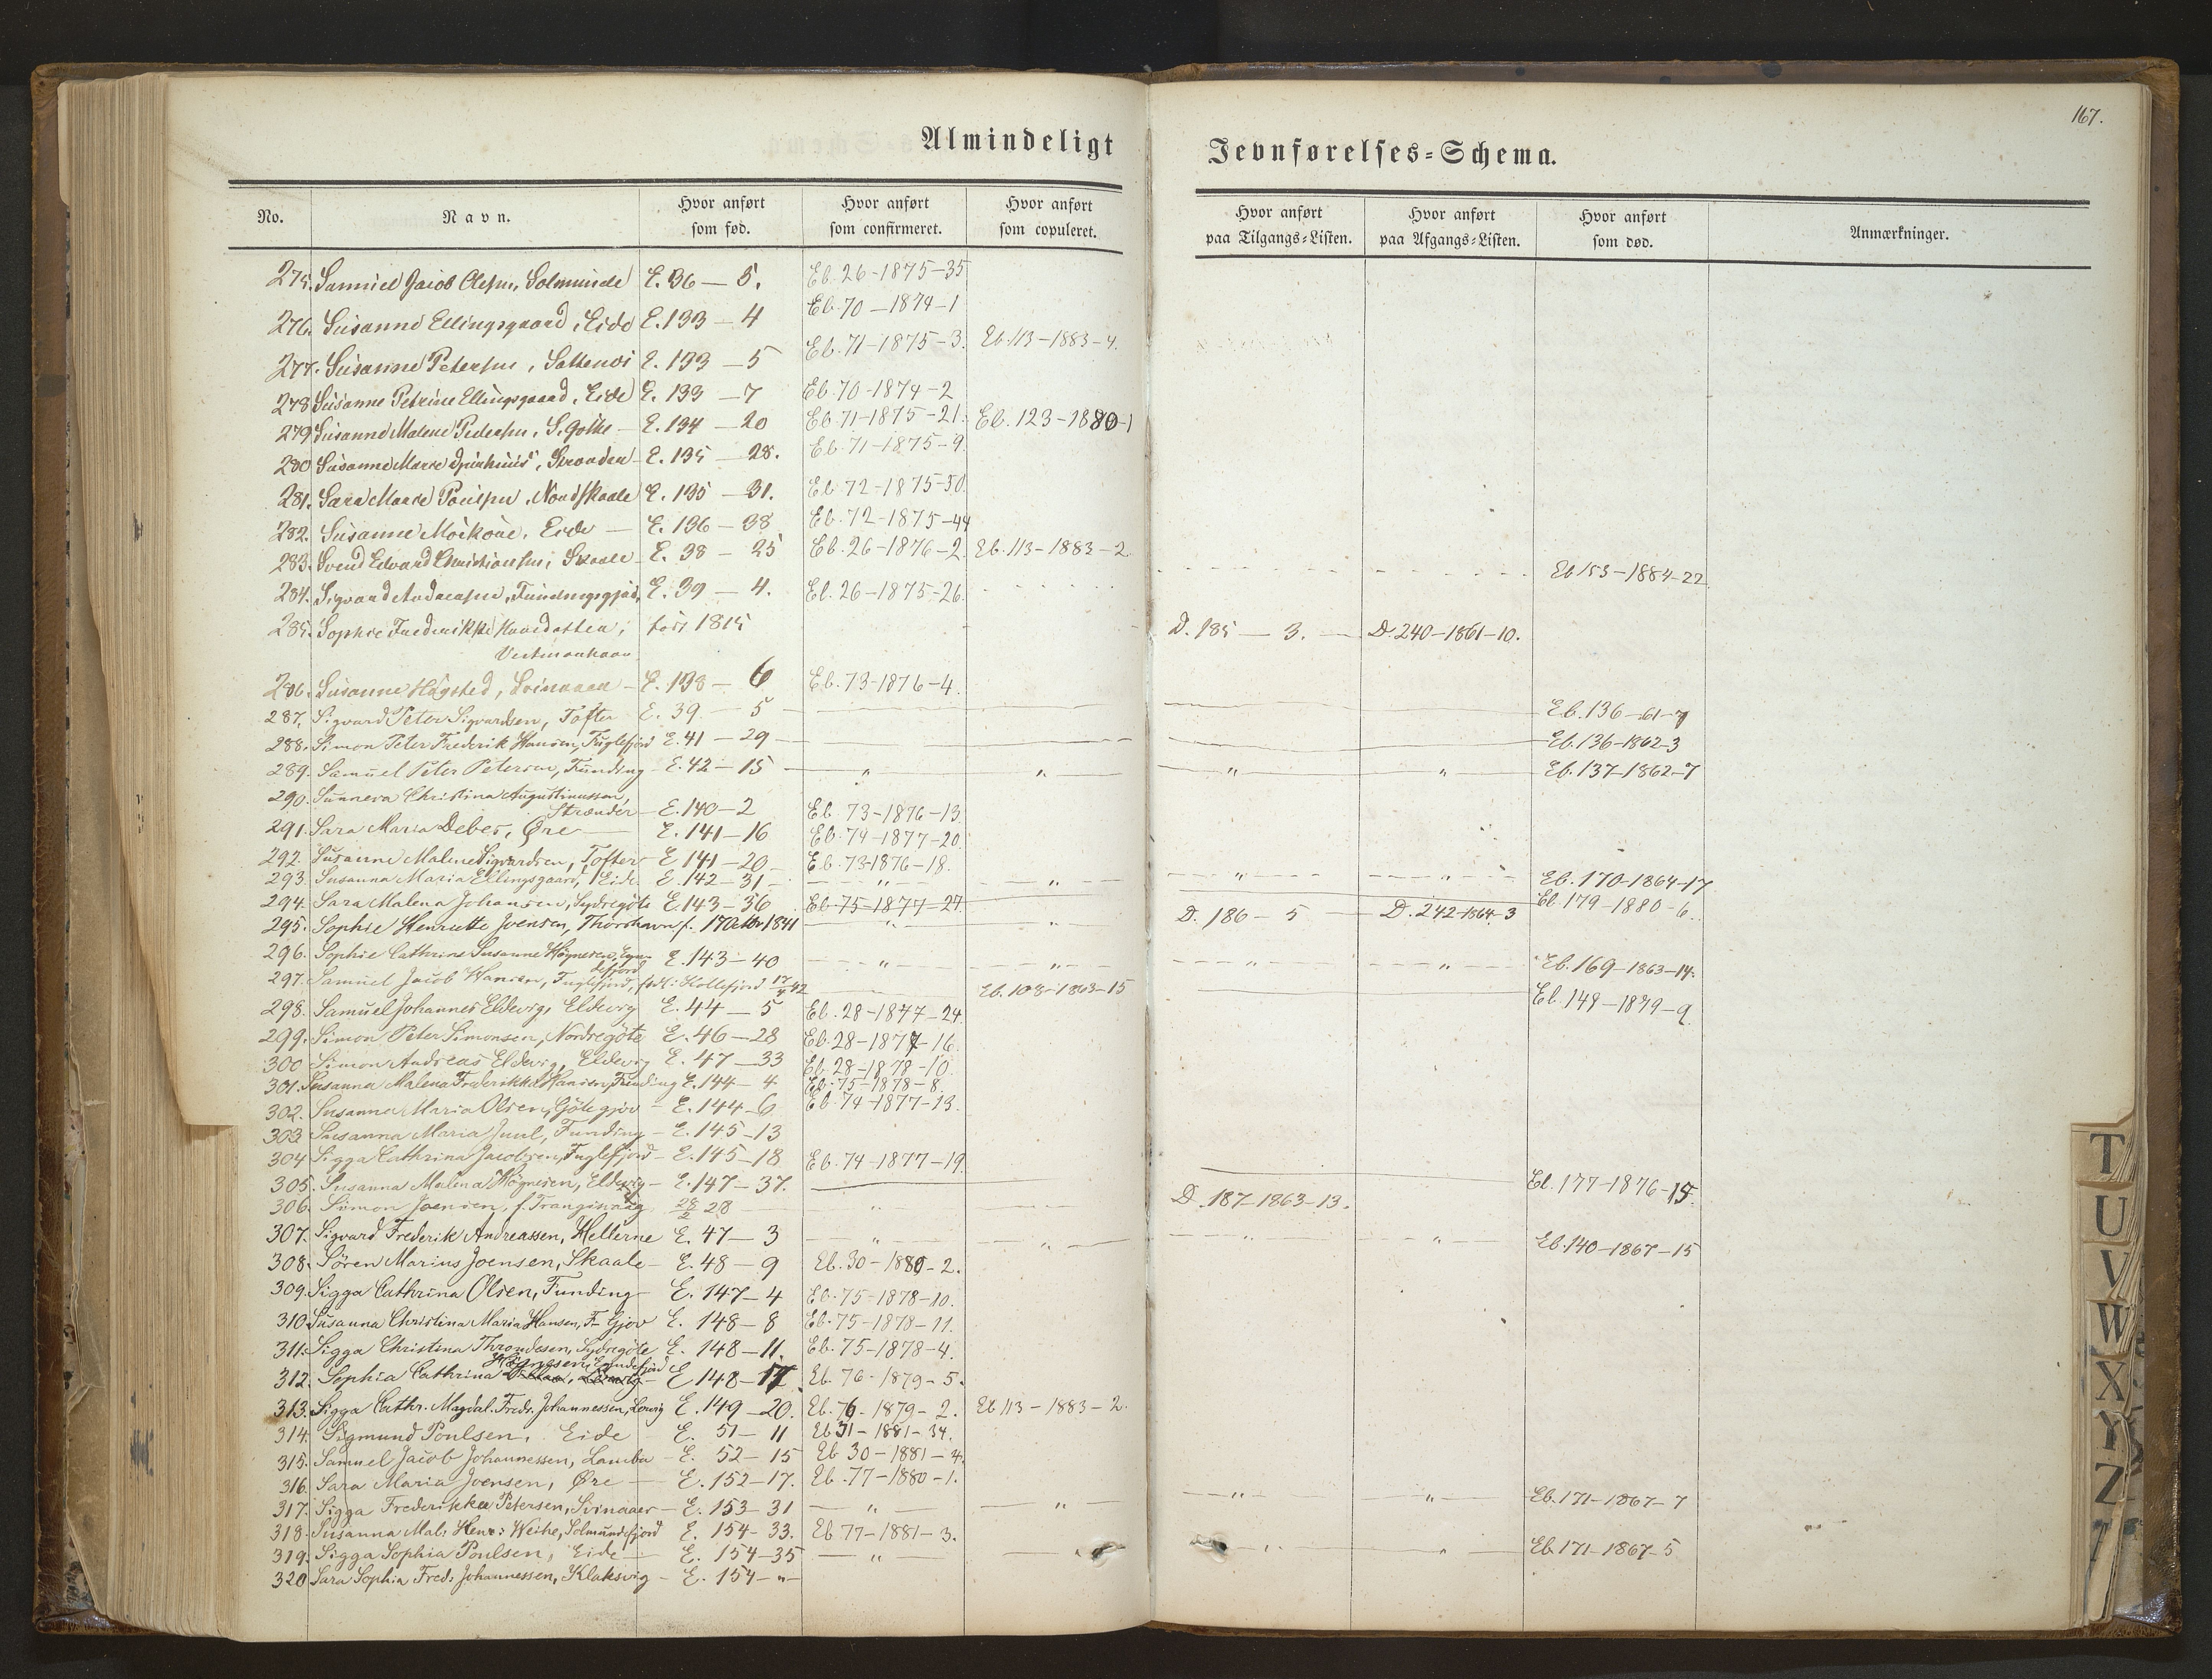 167.
Almindeligt Jevnførelses=Schema.
No. Navn. Hvor anført som fød. Hvor anført som confirmeret. Hvor anført som copuleret. Hvor anført paa Tilgangs=Listen. Hvor anført paa Afgangs=Listen. Hvor anført som død. Anmærkninger.
275. Samuel Jacob Olesen, Solmunde E. 36 — 5. Eb. 26-1875-35
276. Susanne Ellingsgaard, Eide E. 133 — 4 Eb. 70-1874-1
277. Susanne Petersen, E. 133 — 5 Eb. 71-1875-3. Eb. 113-1883-4.
278 Susanne Petrine Ellingsgaard, Eide E. 133 — 7 Eb. 70-1874-2
279 Susanne Malene Pedersen, S. Gothe — E. 134 — 20 Eb. 71-1875-21. Eb. 123-1880-1
280 Susanne Marie Strander — E. 135 — 28. Eb. 71-1875-9.
281. Sara Marie Poulsen, Nordskaale E. 135 — 31. Eb. 72-1875-50.
282. Susanne Mörköre, Eide — E. 136 — 38 Eb. 72-1875-44
283. Svend Edvard Christiansen, Skaale — E. 38 — 25 Eb. 26-1876-2. Eb. 113-1883-2. Eb 153-1884-22
284. Sigvard Andreasen, Fundingsgjov, E. 39 — 4. Eb. 26-1875-26.
285. Sophie Frederikke Knudsdatter, født 1815 D. 185 — 3. — D. 240-1861-10.
Vestmanhavn
286. Susanne Høgsted, Svinaaer — E. 138 — 6 Eb. 73-1876-4.
287. Sigvard Peter Sigvardsen, Tofter E. 39 — 5 — Eb. 136-61-7
288. Simon Peter Frederik Hansen, Fuglefjord E. 41 — 29 — Eb. 136-1862-3
289. Samuel Peter Petersen, Funding — E. 42 — 15 — " " " " Eb. 137-1862-7
290. Sunneva Christina Augustinussen,
Strænder — E. 140 — 2 Eb 73-1876-13.
291. Sara Maria Debes, Øre — E. 141 — 16 Eb. 74-1877-20.
292. Susanne Malene Sigvardsen, Tofter E 141 — 20 Eb. 73-1876-18.
293. Susanna Maria Ellingsgaard, Eide E. 142 — 31 — " " " " Eb. 170-1864-17
294. Sara Malena Johansen, Sydregöte E. 143 — 36 Eb. 75-1877-27. Eb. 179-1880-6.
295. Sophie Henriette Joensen, Thorshavn f. 17 Octbr 1841 " " D. 186 — 5 — D. 242-1864-3
296. Sophie Cathrine Susanne Høgnesen, Eyndefjord E. 143 — 40 " " " " Eb. 169-1863-14.
297. Samuel Jacob Hansen, Fuglefjord, fød i Kollefjord 17/9 42 Eb. 108-1863-15
298. Samuel Johannes Eldevig, Eldevig E. 44 — 5 Eb. 28-1877-24. Eb. 149-1879-9.
299. Simon Peter Simonsen, Nordregöte E. 46 — 28 Eb. 28-1877-16.
300 Simon Andreas Eldevig, Eldevig E. 47 — 33 Eb. 28-1878-10.
301. Susanna Malena Frederikka Hansen, Funding E. 144 — 4 Eb. 75-1878-8.
302. Susanna Maria Olsen, Götegjov — E. 144 — 6 Eb. 74-1877-13.
303 Susanna Maria Juul, Funding — E. 145 — 13
304 Sigga Cathrina Jacobsen, Fuglefjord — E. 145 — 18 Eb. 74-1877-19.
305. Susanna Malena Høgnesen, Eldevig — E. 147 — 37. Eb. 177-1876-15.
306. Simon Joensen, f. Trangisvaag, 28/2 28 " D. 187-1863-13.
307. Sigvard Frederik Andreassen, Hellerne E. 47 — 3 " " " " Eb. 140-1867-15
308. Sören Marius Joensen, Skaale — E. 48 — 9 Eb. 30-1880-2.
309. Sigga Cathrina Olsen, Funding — E. 147 — 4 Eb. 75-1878-10.
310. Susanna Christina Maria Hansen, F. Gjov E. 148 — 8 Eb. 75-1878-11.
311. Sigga Christina Throndesen, Sydregöte E. 148 — 11. Eb. 75-1878-4.
Høgnesen, Eyndefjord
312. Sophia Cathrina E 148 — 17. Eb. 76-1879-5.
313. Sigga Cathr. Magdal. Fredr. Johannessen, Lorvig E. 149 — 20. Eb. 76-1879-2. Eb 113-1883-2.
314. Sigmund Poulsen, Eide E. 51 — 11 Eb 31-1881-34.
315. Samuel Jacob Johannessen, Lamba — E. 52 — 15 Eb 30-1881-4.
316. Sara Maria Joensen, Øre — E. 152 — 17. Eb. 77-1880-1.
317. Sigga Frederikka Petersen, Svinaaer — E. 153 — 31 " " " " Eb. 171-1867-7
318. Susanna Mal. Henr: Weihe, Solmundefjord E. 154 — 33. Eb 77-1881-3.
319. Sigga Sophia Poulsen, Eide — E. 154 — 35 " " " " Eb. 171-1867-5
320 Sara Sophia Fred: Johannessen, Klaksvig — E. 154 — " —
T
U
V
W
X
Y
Z